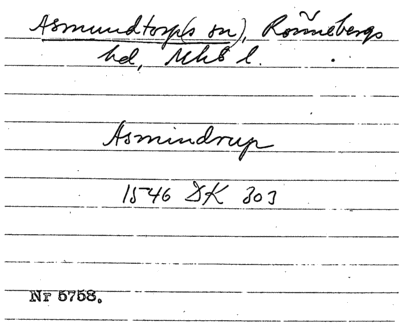 Asmundtorp(s sn), Rönnebergs
hd, Mhs l.
Asmindrup
1546 DK 303
Nr 5758.